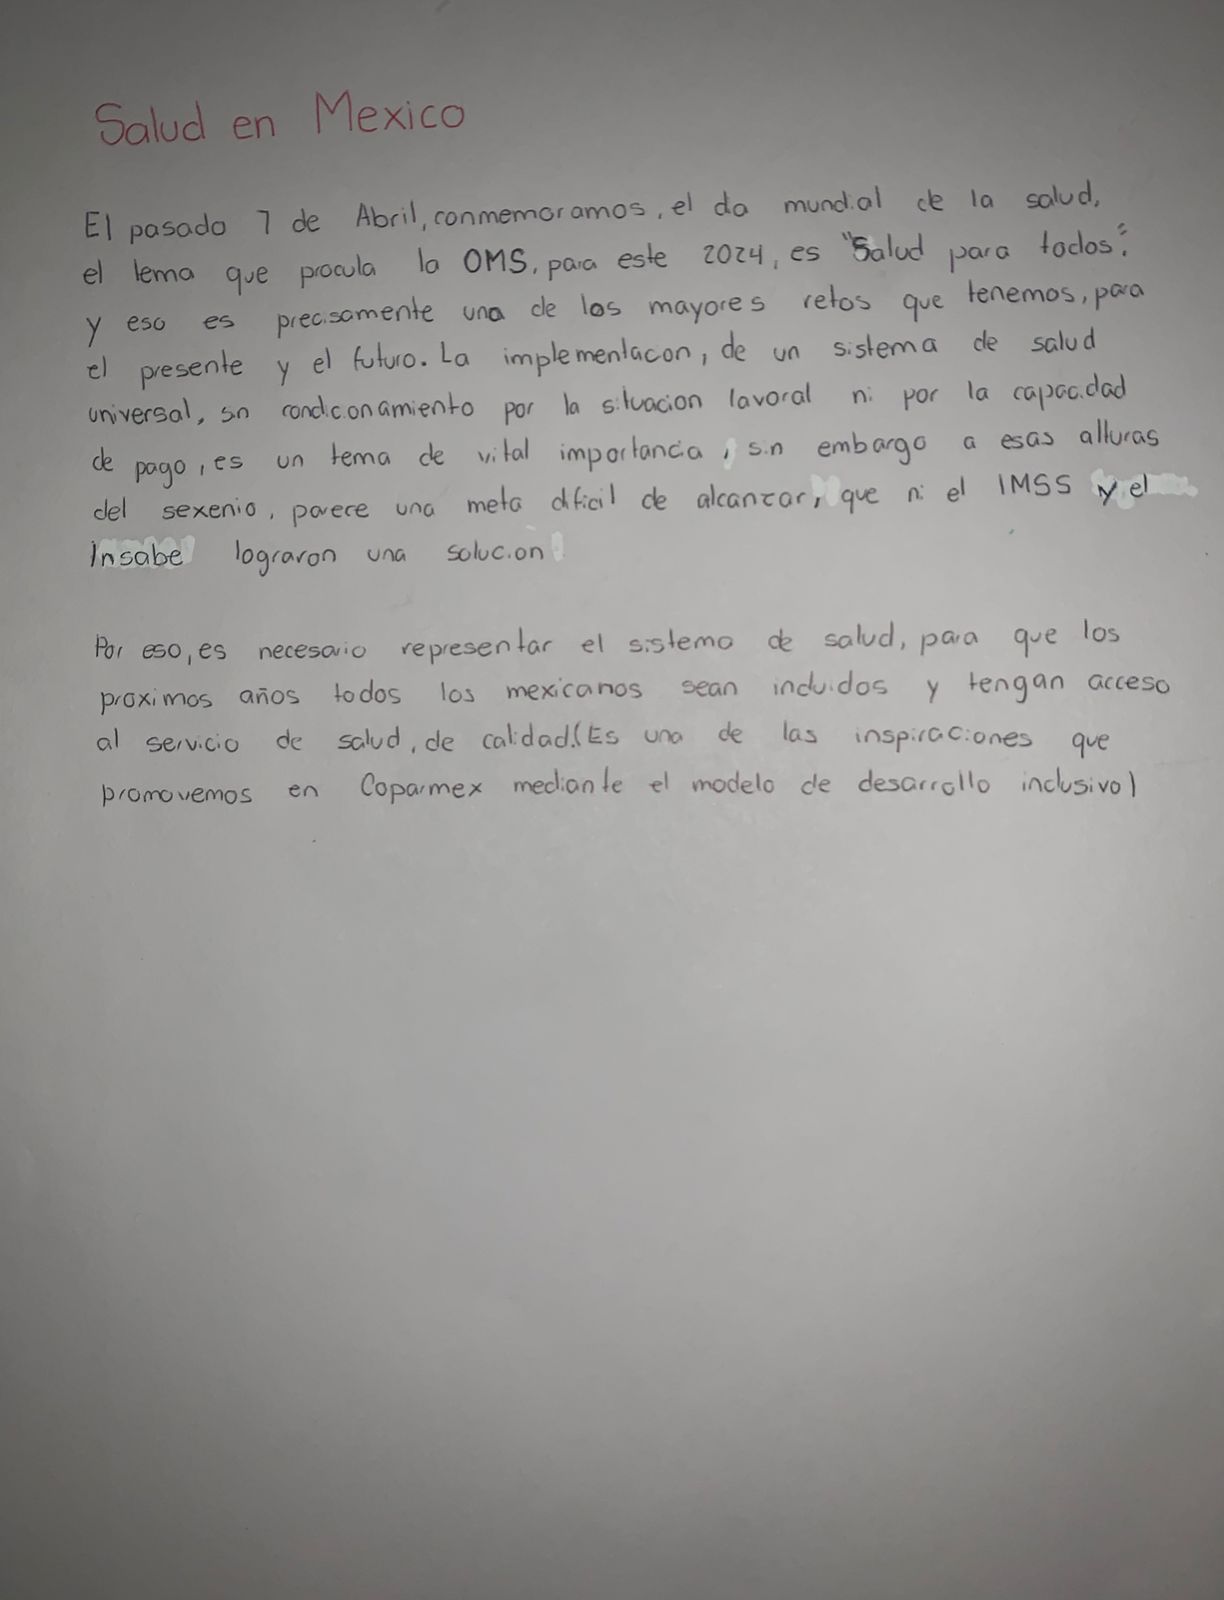 Salud en Mexico
El pasado 7 de Abril, conmemoramos, el da mundial de la salud,
el lema que procula la OMS, para este 2024, es "Salud para todos".
y eso es precisamente una de los mayores retos que tenemos, para
el presente y el futuro. La implementacon, de un sistema de salud
universal, sn condiconamiento por la situacion lavoral ni por la capacidad
de pago, es un tema de vital importancia, sin embargo a esas alluras
del sexenio, parece una meta dificil de alcanzar, que ni el IMSS y el
Insabe lograron una solucion
Por eso, es necesario representar el sistema de salud, para que los
proximos años todos los mexicanos sean incluidos y tengan acceso
al servicio de salud, de calidad. (Es una de las inspiraciones que
promovemos en Coparmex mediante el modelo de desarrollo inclusivo)